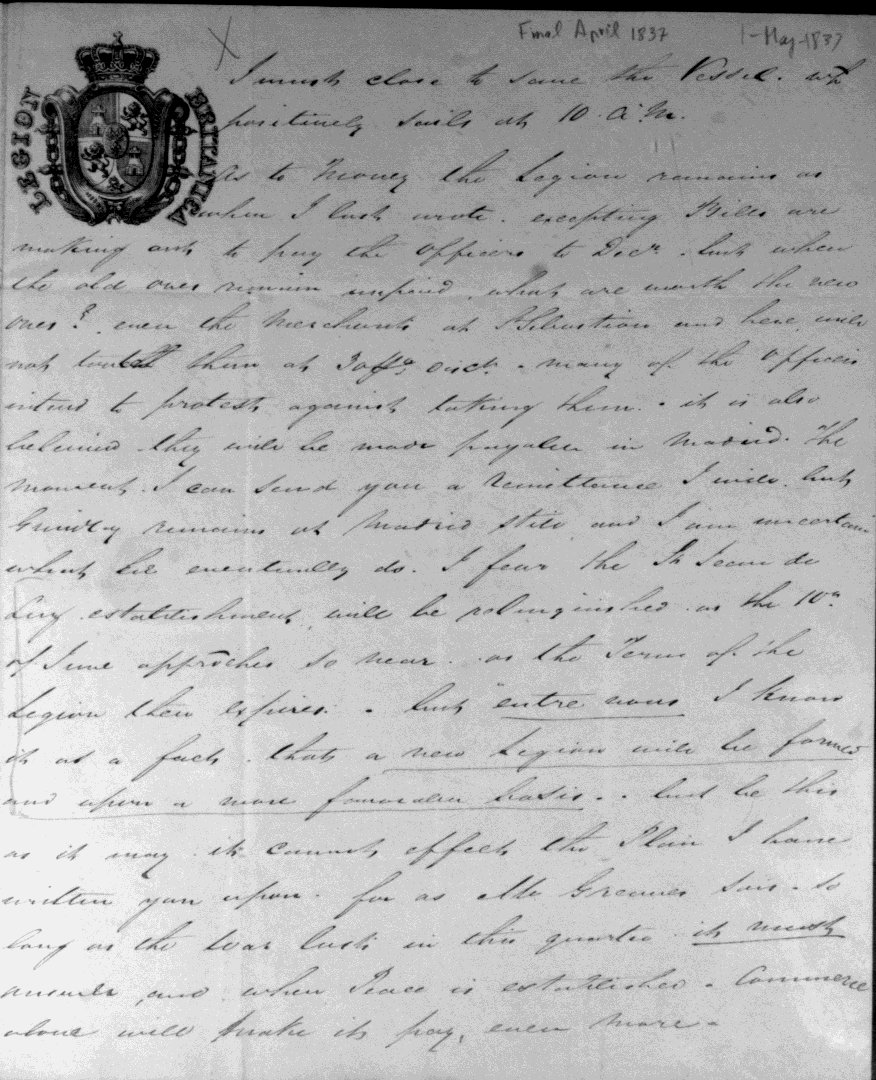 Final April 1837
1-May-1837
LEGION BRITANICA
I must close to save the Vessel. wh
positively sails at 10. A.M.
As to Money the Legion remains as
when I last wrote. excepting Bills are
making out to pay the officers to Decr. but when
the old ones remain unpaid, what are worth the new
ones? even the Merchants at St Sebastian and here will
not touch them at disct. many of the officers
intend to protest against taking them. it is also
believed they will be made payable in Madrid. The
moment I can send you a remittance I will. but
remains at Madrid still and I am uncertain
what he eventually do. I fear the St Jean de
Luz establishment, will be relinquished as the 10th
of June approches so near. as the Term of the
Legion then expires. but entre nous I know
it as a fact. that a new Legion will be formed
and upon a more favorable basis. but be this
as it may it cannot effect the Plan I have
written you upon. for as Mr Greaves says. so
long as the War lasts in this quarter it must
answer and when Peace is established. Commerce
alone will make it pay, even more.